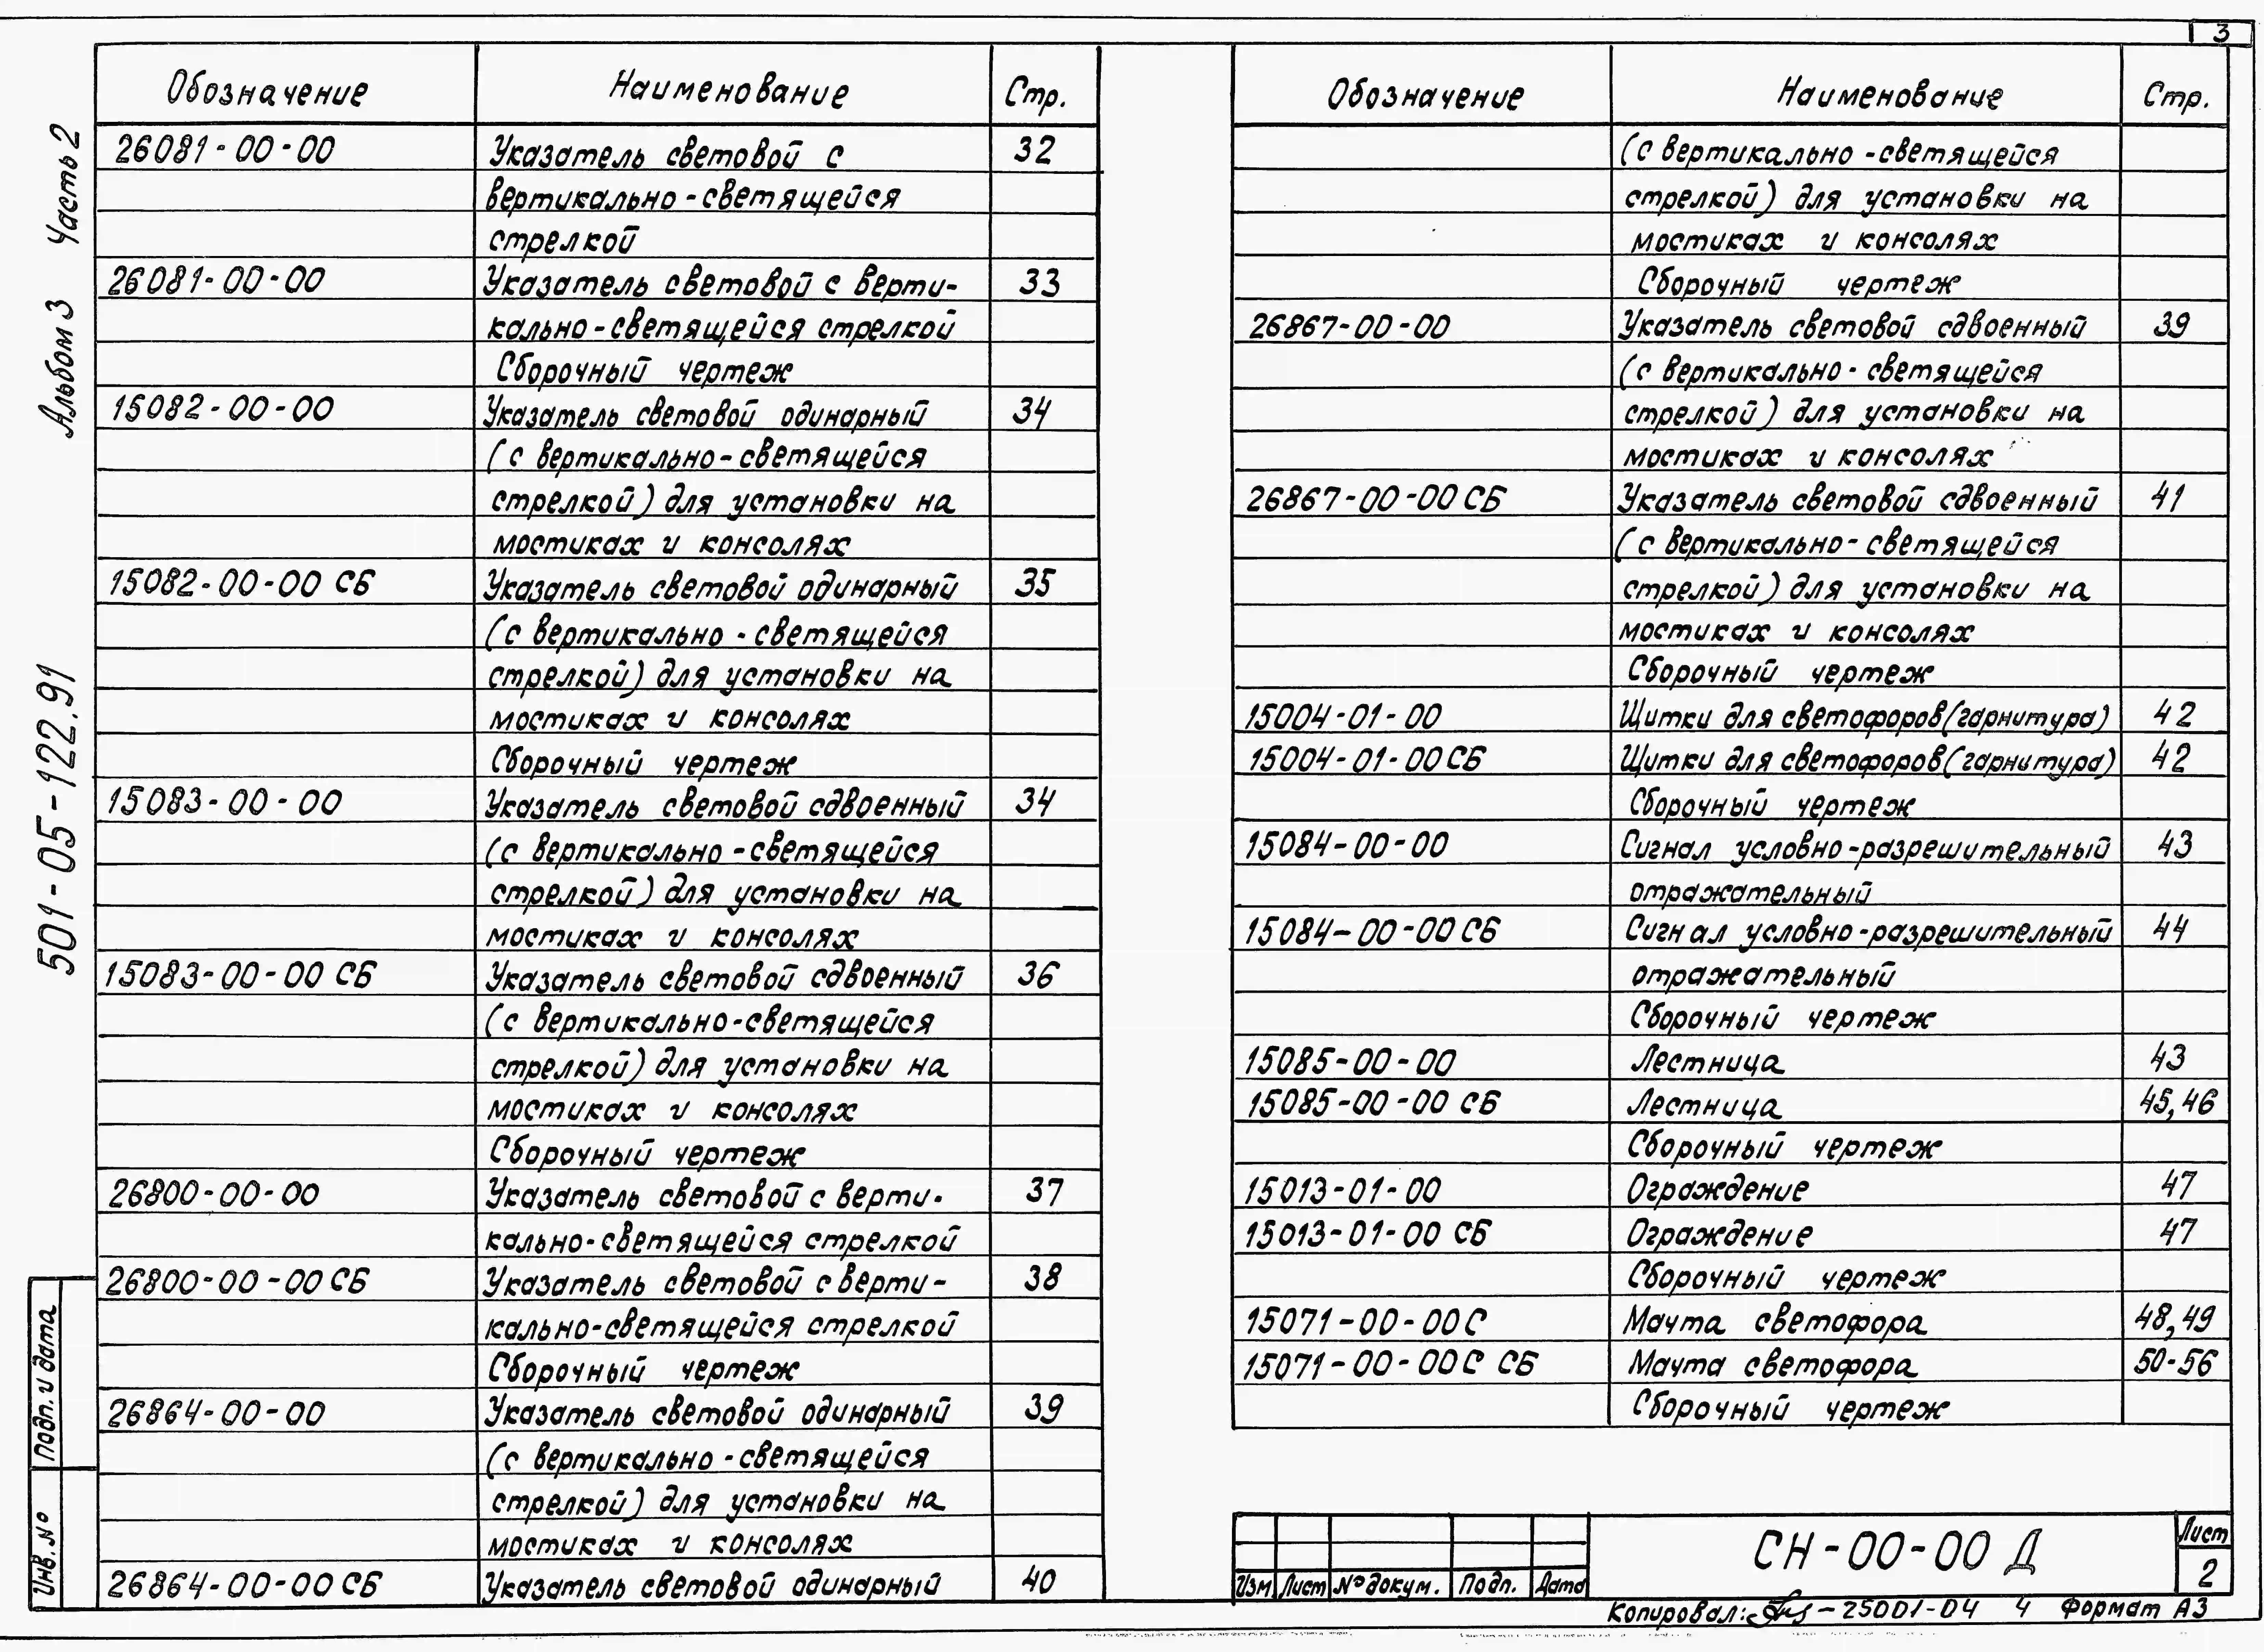 3
Альбом 3 Часть 2
501-05-122.91
Подп. и дата
Инв. №
Обозначение Наименование Стр.
26081-00-00 Указатель световой с 32
вертикально-светящейся
стрелкой
26081-00-00 Указатель световой с верти- 33
кально-светящейся стрелкой
Сборочный чертеж
15082-00-00 Указатель световой одинарный 34
(с вертикально-светящейся
стрелкой) для установки на
мостиках и консолях
15082-00-00 СБ Указатель световой одинарный 35
(с вертикально-светящейся
стрелкой) для установки на
мостиках и консолях
Сборочный чертеж
15083-00-00 Указатель световой сдвоенный 34
(с вертикально-светящейся
стрелкой) для установки на
мостиках и консолях
15083-00-00 СБ Указатель световой сдвоенный 36
(с вертикально-светящейся
стрелкой) для установки на
мостиках и консолях
Сборочный чертеж
26800-00-00 Указатель световой с верти- 37
кально-светящейся стрелкой
26800-00-00 СБ Указатель световой с верти- 38
кально-светящейся стрелкой
Сборочный чертеж
26864-00-00 Указатель световой одинарный 39
(с вертикально-светящейся
стрелкой) для установки на
мостиках и консолях
26864-00-00 СБ Указатель световой одинарный 40
Обозначение Наименование Стр.
(с вертикально-светящейся
стрелкой) для установки на
мостиках и консолях
Сборочный чертеж
26867-00-00 Указатель световой сдвоенный 39
(с вертикально-светящейся
стрелкой) для установки на
мостиках и консолях
26867-00-00 СБ Указатель световой сдвоенный 41
(с вертикально-светящейся
стрелкой) для установки на
мостиках и консолях
Сборочный чертеж
15004-01-00 Щитки для светофоров (гарнитура) 42
15004-01-00 СБ Щитки для светофоров (гарнитура) 42
Сборочный чертеж
15084-00-00 Сигнал условно-разрешительный 43
отражательный
15084-00-00 СБ Сигнал условно-разрешительный 44
отражательный
Сборочный чертеж
15085-00-00 Лестница 43
15085-00-00 СБ Лестница 45,46
Сборочный чертеж
15013-01-00 Ограждение 47
15013-01-00 СБ Ограждение 47
Сборочный чертеж
15071-00-00С Мачта светофора 48,49
15071-00-00С СБ Мачта светофора 50-56
Сборочный чертеж
Изм Лист № докум. Подп. Дата
СН-00-00 Д
Лист
2
Копировал: -25001-04 4 Формат А3